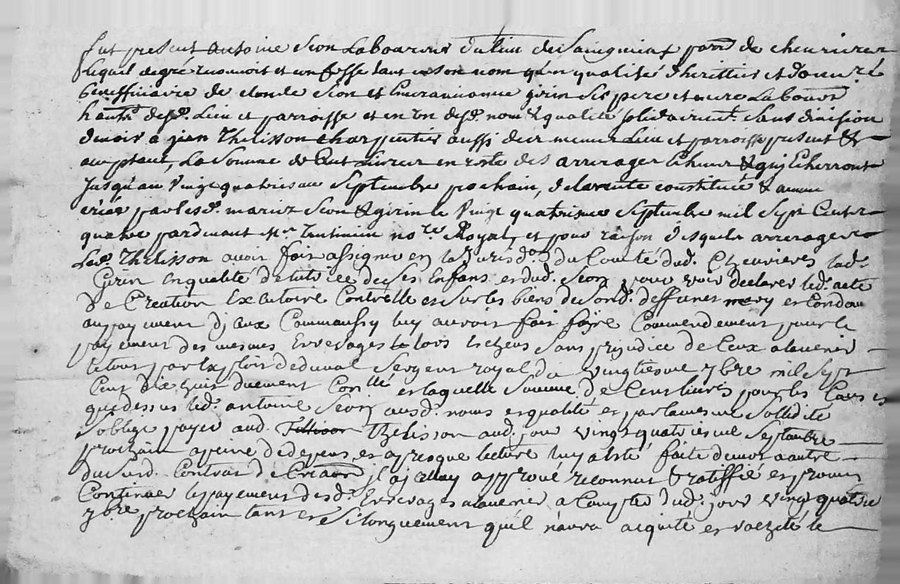 fut present antoine Seon Laboureur du lieu de parr de cheurierer
lequel degré reconnoit et confesse tant en son nom qu'en qualité d'heritier et donneré
benefficiaire de claude Seon et girin Ses pere et mere Labour
haut desd. Lieu et parroisse et en son desd. nom & qualité solidairement Sans division
devoir à jean Thelisson charpentier aussi du meme Lieu et parroisse present &
acceptant, La Somme de Cent Livres en reste des arrerages Echeus & qui Echerront
Jusqu'au vingt quatriesme Septembre prochain, de la rente constituée & annu
créée par lesd. mariez Seon & girin le vingt quatriesme Septembre mil Sept Cents
quatre pardevant Me no.re Royal, et pour raison desquels arrerages
Led. Thelisson avoit fait assigner en la Jurisd. du Comté dud. Cheurieres lad.
Girin en qualité de tutrice de ses Enfans et dud. Seon pour voir declarer led. acte
de Creation Executoire Contrelle et sur les biens dud. deffunct mary et Condam
au payement d'iceux Comm aussy luy auroit fait faire Commendement pour le
payement des mesmes arrerages lors Escheus Sans prejudice de Ceux a lavenir
le tout par Exploit de duval Sergent royal du vingtiesme 7bre mil Sept
Cent dix huit duement Con.lle et laquelle Somme de Cent livres pour les Causes
que dessus led. antoine Seon ausd. noms et qualité et par la mesme Sollidité
s'oblige payer aud. Thelisson aud. jour vingt quatriesme Septembre
prochain a peine de depens, et apres que lecture luy a esté faite de mot a autre
du Susd. Contrat de Creaon jl a approuvé reconnut & ratiffié et promis
Continuer le payement desd. arrerages a lavenir a Compter dud. jour vingt quatre
7bre prochain tant et Si longuement qu'il naura acquité et le